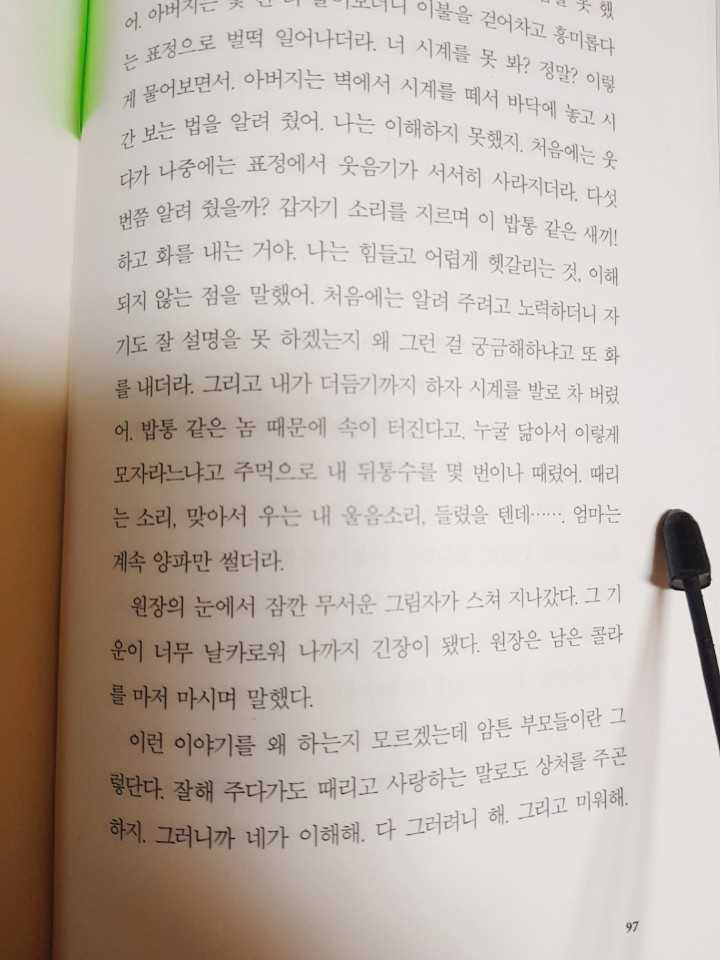 어. 아버지는 몇 번 더 물어보더니 이불을 걷어차고 흥미롭다
는 표정으로 벌떡 일어나더라. 너 시계를 못 봐? 정말? 이렇
게 물어보면서. 아버지는 벽에서 시계를 떼서 바닥에 놓고 시
간 보는 법을 알려 줬어. 나는 이해하지 못했지. 처음에는 웃
다가 나중에는 표정에서 웃음기가 서서히 사라지더라. 다섯
번쯤 알려 줬을까? 갑자기 소리를 지르며 이 밥통 같은 새끼!
하고 화를 내는 거야. 나는 힘들고 어렵게 헷갈리는 것, 이해
되지 않는 점을 말했어. 처음에는 알려 주려고 노력하더니 자
기도 잘 설명을 못 하겠는지 왜 그런 걸 궁금해하냐고 또 화
를 내더라. 그리고 내가 더듬기까지 하자 시계를 발로 차 버렸
어. 밥통 같은 놈 때문에 속이 터진다고. 누굴 닮아서 이렇게
모자라느냐고 주먹으로 내 뒤통수를 몇 번이나 때렸어. 때리
는 소리, 맞아서 우는 내 울음소리, 들렸을 텐데……. 엄마는
계속 양파만 썰더라.
원장의 눈에서 잠깐 무서운 그림자가 스쳐 지나갔다. 그 기
운이 너무 날카로워 나까지 긴장이 됐다. 원장은 남은 콜라
를 마저 마시며 말했다.
이런 이야기를 왜 하는지 모르겠는데 암튼 부모들이란 그
렇단다. 잘해 주다가도 때리고 사랑하는 말로도 상처를 주곤
하지. 그러니까 네가 이해해. 다 그러려니 해. 그리고 미워해.
97